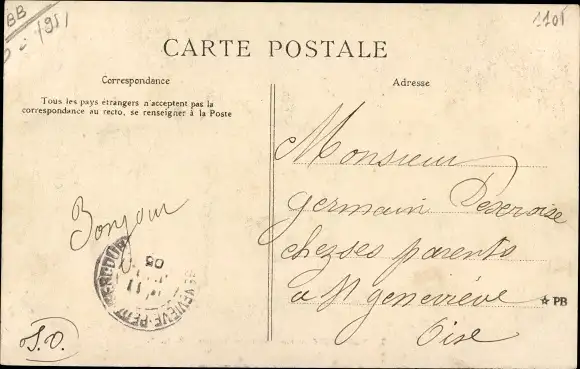 BB
1101
CARTE POSTALE
Correspondance
Tous les pays étrangers n'acceptent pas la
correspondance au recto, se renseigner à la Poste
Bonjour
05
11
J.O.
Adresse
Monsieur
germain
chez ses parents
a St geneviève
Oise
☆ PB